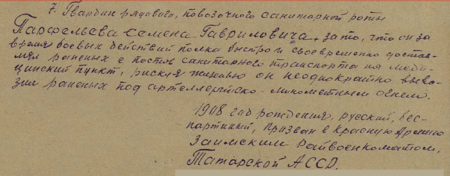 7. Гвардии рядового, повозочного санитарной роты
Парфельева Семена Гавриловича, за то, что он за
время боевых действий полка быстро и своевременно достав-
лял раненых с постов санитарного транспорта на меди-
цинский пункт, рискуя жизнью он неоднократно выво-
зил раненых под артиллерийско-минометным огнем.
1908 год рождения, русский, бес-
партийный, призван в Красную Армию
Заимским Райвоенкоматом,
Татарской АССР.